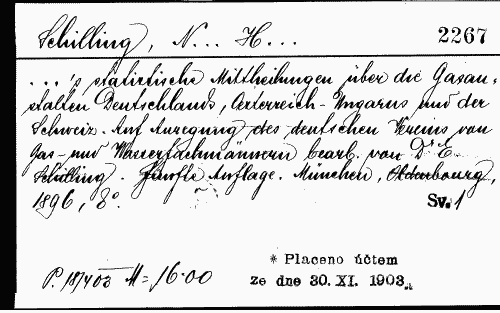 Schilling, N... H... 2267
...'s statistische Mittheilungen über die Gasan-
stalten Deutschlands, Oesterreich-Ungarns und der
Schweiz. Auf Anregung des deutschen Vereins von
Gas- und Wasserfachmännern bearb. von Dr E.
Schilling. Fünfte Auflage. München, Oldenbourg,
1896, 8°. Sv. 1
* Placeno účtem
P. 187403 M= 16·00 ze dne 30. XI. 1903.